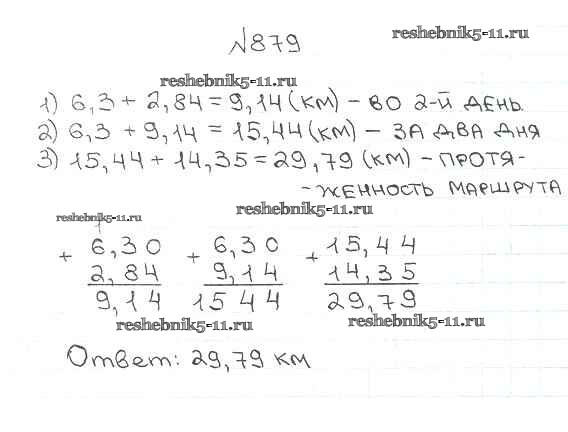 №879
reshebnik5-11.ru
reshebnik5-11.ru
1) 6,3 + 2,84 = 9,14 (км) - во 2-й день
2) 6,3 + 9,14 = 15,44 (км) - за два дня
3) 15,44 + 14,35 = 29,79 (км) - протя-
- женность маршрута
reshebnik5-11.ru
reshebnik5-11.ru
1
+ 6,30 + 6,30 + 15,44
2,84 9,14 14,35
9,14 15 44 29,79
reshebnik5-11.ru reshebnik5-11.ru
Ответ: 29,79 км